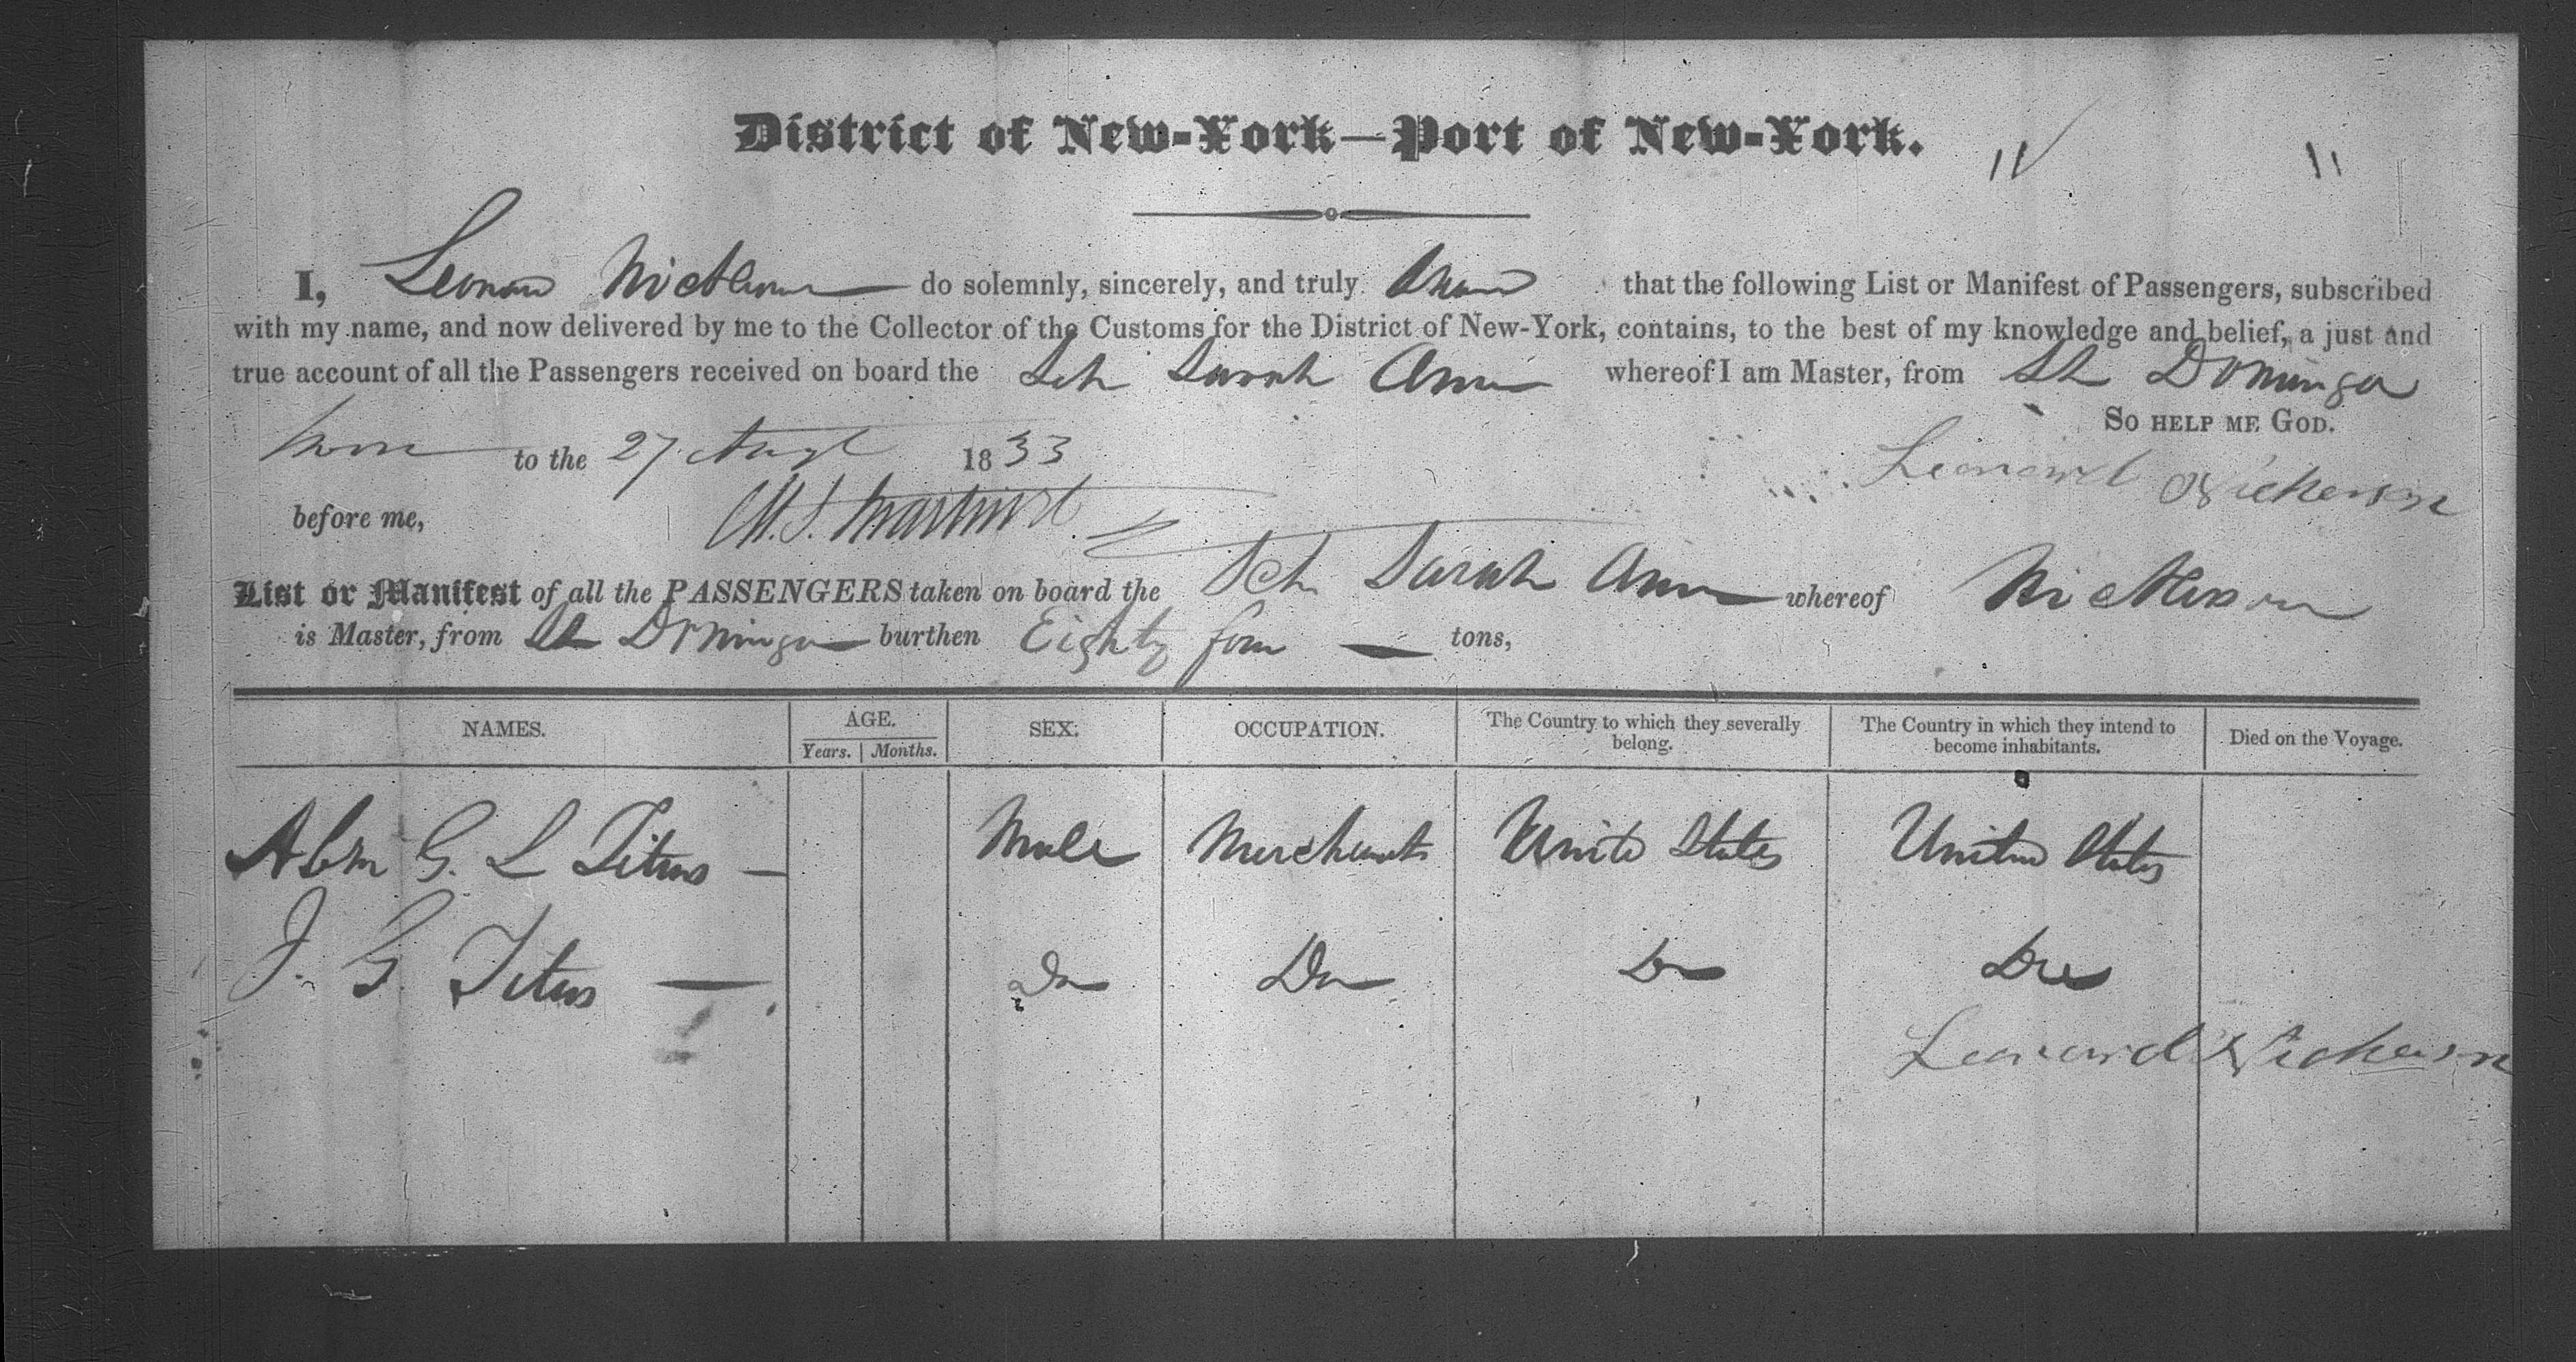 District of New-York—Port of New-York.
I, Leonard Nickerson do solemnly, sincerely, and truly Swear that the following List or Manifest of Passengers, subscribed
with my name, and now delivered by me to the Collector of the Customs for the District of New-York, contains, to the best of my knowledge and belief, a just and
true account of all the Passengers received on board the Sch Sarah Ann whereof I am Master, from St Domingo
So HELP ME GOD.
Sworn to the 27 Augt 1833
Leonard Nickerson
before me,
List or Manifest of all the PASSENGERS taken on board the Sch Sarah Ann whereof Nickerson
is Master, from St Domingo burthen Eighty four tons,
NAMES. AGE. SEX. OCCUPATION. The Country to which they severally belong. The Country in which they intend to become inhabitants. Died on the Voyage.
Years. Months.
Abm G. L Titus — Male Merchant United States United States
J. G. Titus — Do Do Do Do
Leonard Nickerson